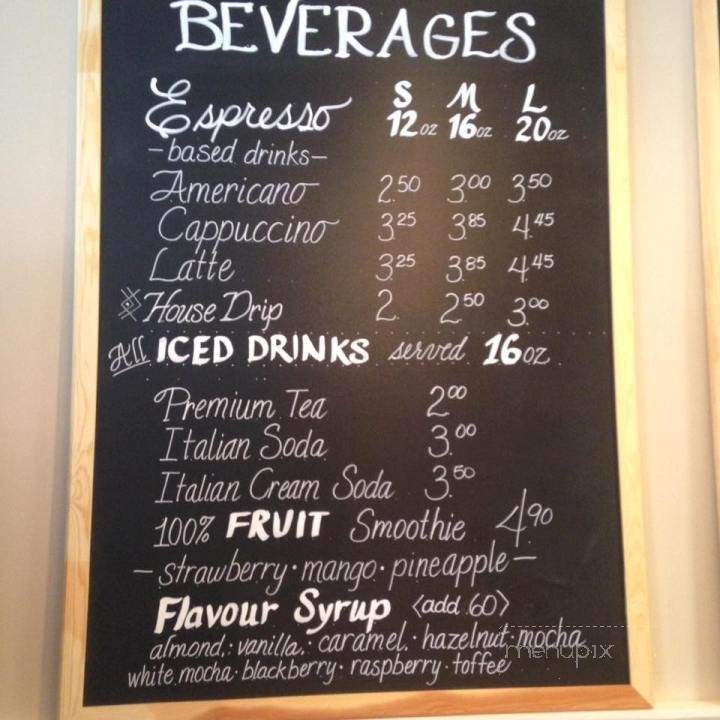 BEVERAGES
Espresso S M L
12oz 16oz 20oz
-based drinks-
Americano 2.50 3.00 3.50
Cappuccino 3.25 3.85 4.45
Latte 3.25 3.85 4.45
House Drip 2. 2.50 3.00
All ICED DRINKS served 16oz
Premium Tea 2.00
Italian Soda 3.00
Italian Cream Soda 3.50
100% FRUIT Smoothie 4.90
- strawberry · mango · pineapple -
Flavour Syrup <add .60>
almond · vanilla · caramel · hazelnut · mocha
white mocha · blackberry · raspberry · toffee
menupix